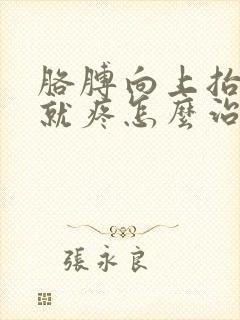 胳膊向上抬
就疼怎麼治
張永良